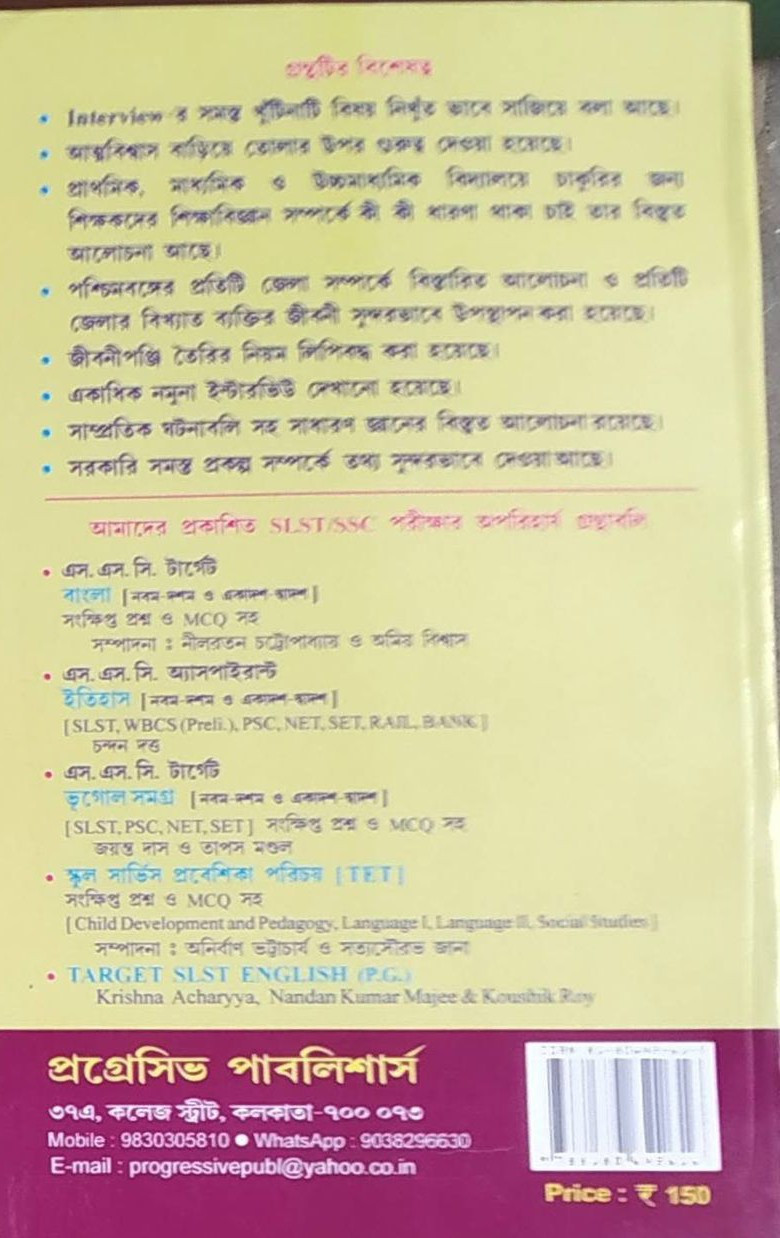 গ্রন্থটির বিশেষত্ব
• Interview র সমস্ত খুঁটিনাটি বিষয় নিখুঁত ভাবে সাজিয়ে বলা আছে।
• আত্মবিশ্বাস বাড়িয়ে তোলার উপর গুরুত্ব দেওয়া হয়েছে।
• প্রাথমিক, মাধ্যমিক ও উচ্চমাধ্যমিক বিদ্যালয়ে চাকুরির জন্য
শিক্ষকদের শিক্ষাবিজ্ঞান সম্পর্কে কী কী ধারণা থাকা চাই তার বিস্তৃত
আলোচনা আছে।
• পশ্চিমবঙ্গের প্রতিটি জেলা সম্পর্কে বিস্তারিত আলোচনা ও প্রতিটি
জেলার বিখ্যাত ব্যক্তির জীবনী সুন্দরভাবে উপস্থাপন করা হয়েছে।
• জীবনীপঞ্জি তৈরির নিয়ম লিপিবদ্ধ করা হয়েছে।
• একাধিক নমুনা ইন্টারভিউ দেখানো হয়েছে।
• সাম্প্রতিক ঘটনাবলি সহ সাধারণ জ্ঞানের বিস্তৃত আলোচনা রয়েছে।
• সরকারি সমস্ত প্রকল্প সম্পর্কে তথ্য সুন্দরভাবে দেওয়া আছে।
আমাদের প্রকাশিত SLST/SSC পরীক্ষার অপরিহার্য গ্রন্থাবলি
• এস. এস. সি. টার্গেট
বাংলা [নবম-দশম ও একাদশ-দ্বাদশ]
সংক্ষিপ্ত প্রশ্ন ও MCQ সহ
সম্পাদনা : নীলরতন চট্টোপাধ্যায় ও অমিয় বিশ্বাস
• এস. এস. সি. অ্যাসপাইরান্ট
ইতিহাস [নবম-দশম ও একাদশ-দ্বাদশ]
[SLST, WBCS (Preli.), PSC, NET, SET, RAIL, BANK]
চন্দন দত্ত
• এস. এস. সি. টার্গেট
ভূগোল সমগ্র [নবম-দশম ও একাদশ-দ্বাদশ]
[SLST, PSC, NET, SET] সংক্ষিপ্ত প্রশ্ন ও MCQ সহ
জয়ন্ত দাস ও তাপস মণ্ডল
• স্কুল সার্ভিস প্রবেশিকা পরিচয় [TET]
সংক্ষিপ্ত প্রশ্ন ও MCQ সহ
[Child Development and Pedagogy, Language I, Language II, Social Studies]
সম্পাদনা : অনির্বাণ ভট্টাচার্য ও সত্যসৌরভ জানা
• TARGET SLST ENGLISH (P.G.)
Krishna Acharyya, Nandan Kumar Majee & Koushik Roy
প্রগ্রেসিভ পাবলিশার্স
৩৭এ, কলেজ স্ট্রীট, কলকাতা-৭০০ ০৭৩
Mobile : 9830305810 ● WhatsApp : 9038296630
E-mail : progressivepubl@yahoo.co.in
Price : ₹ 150